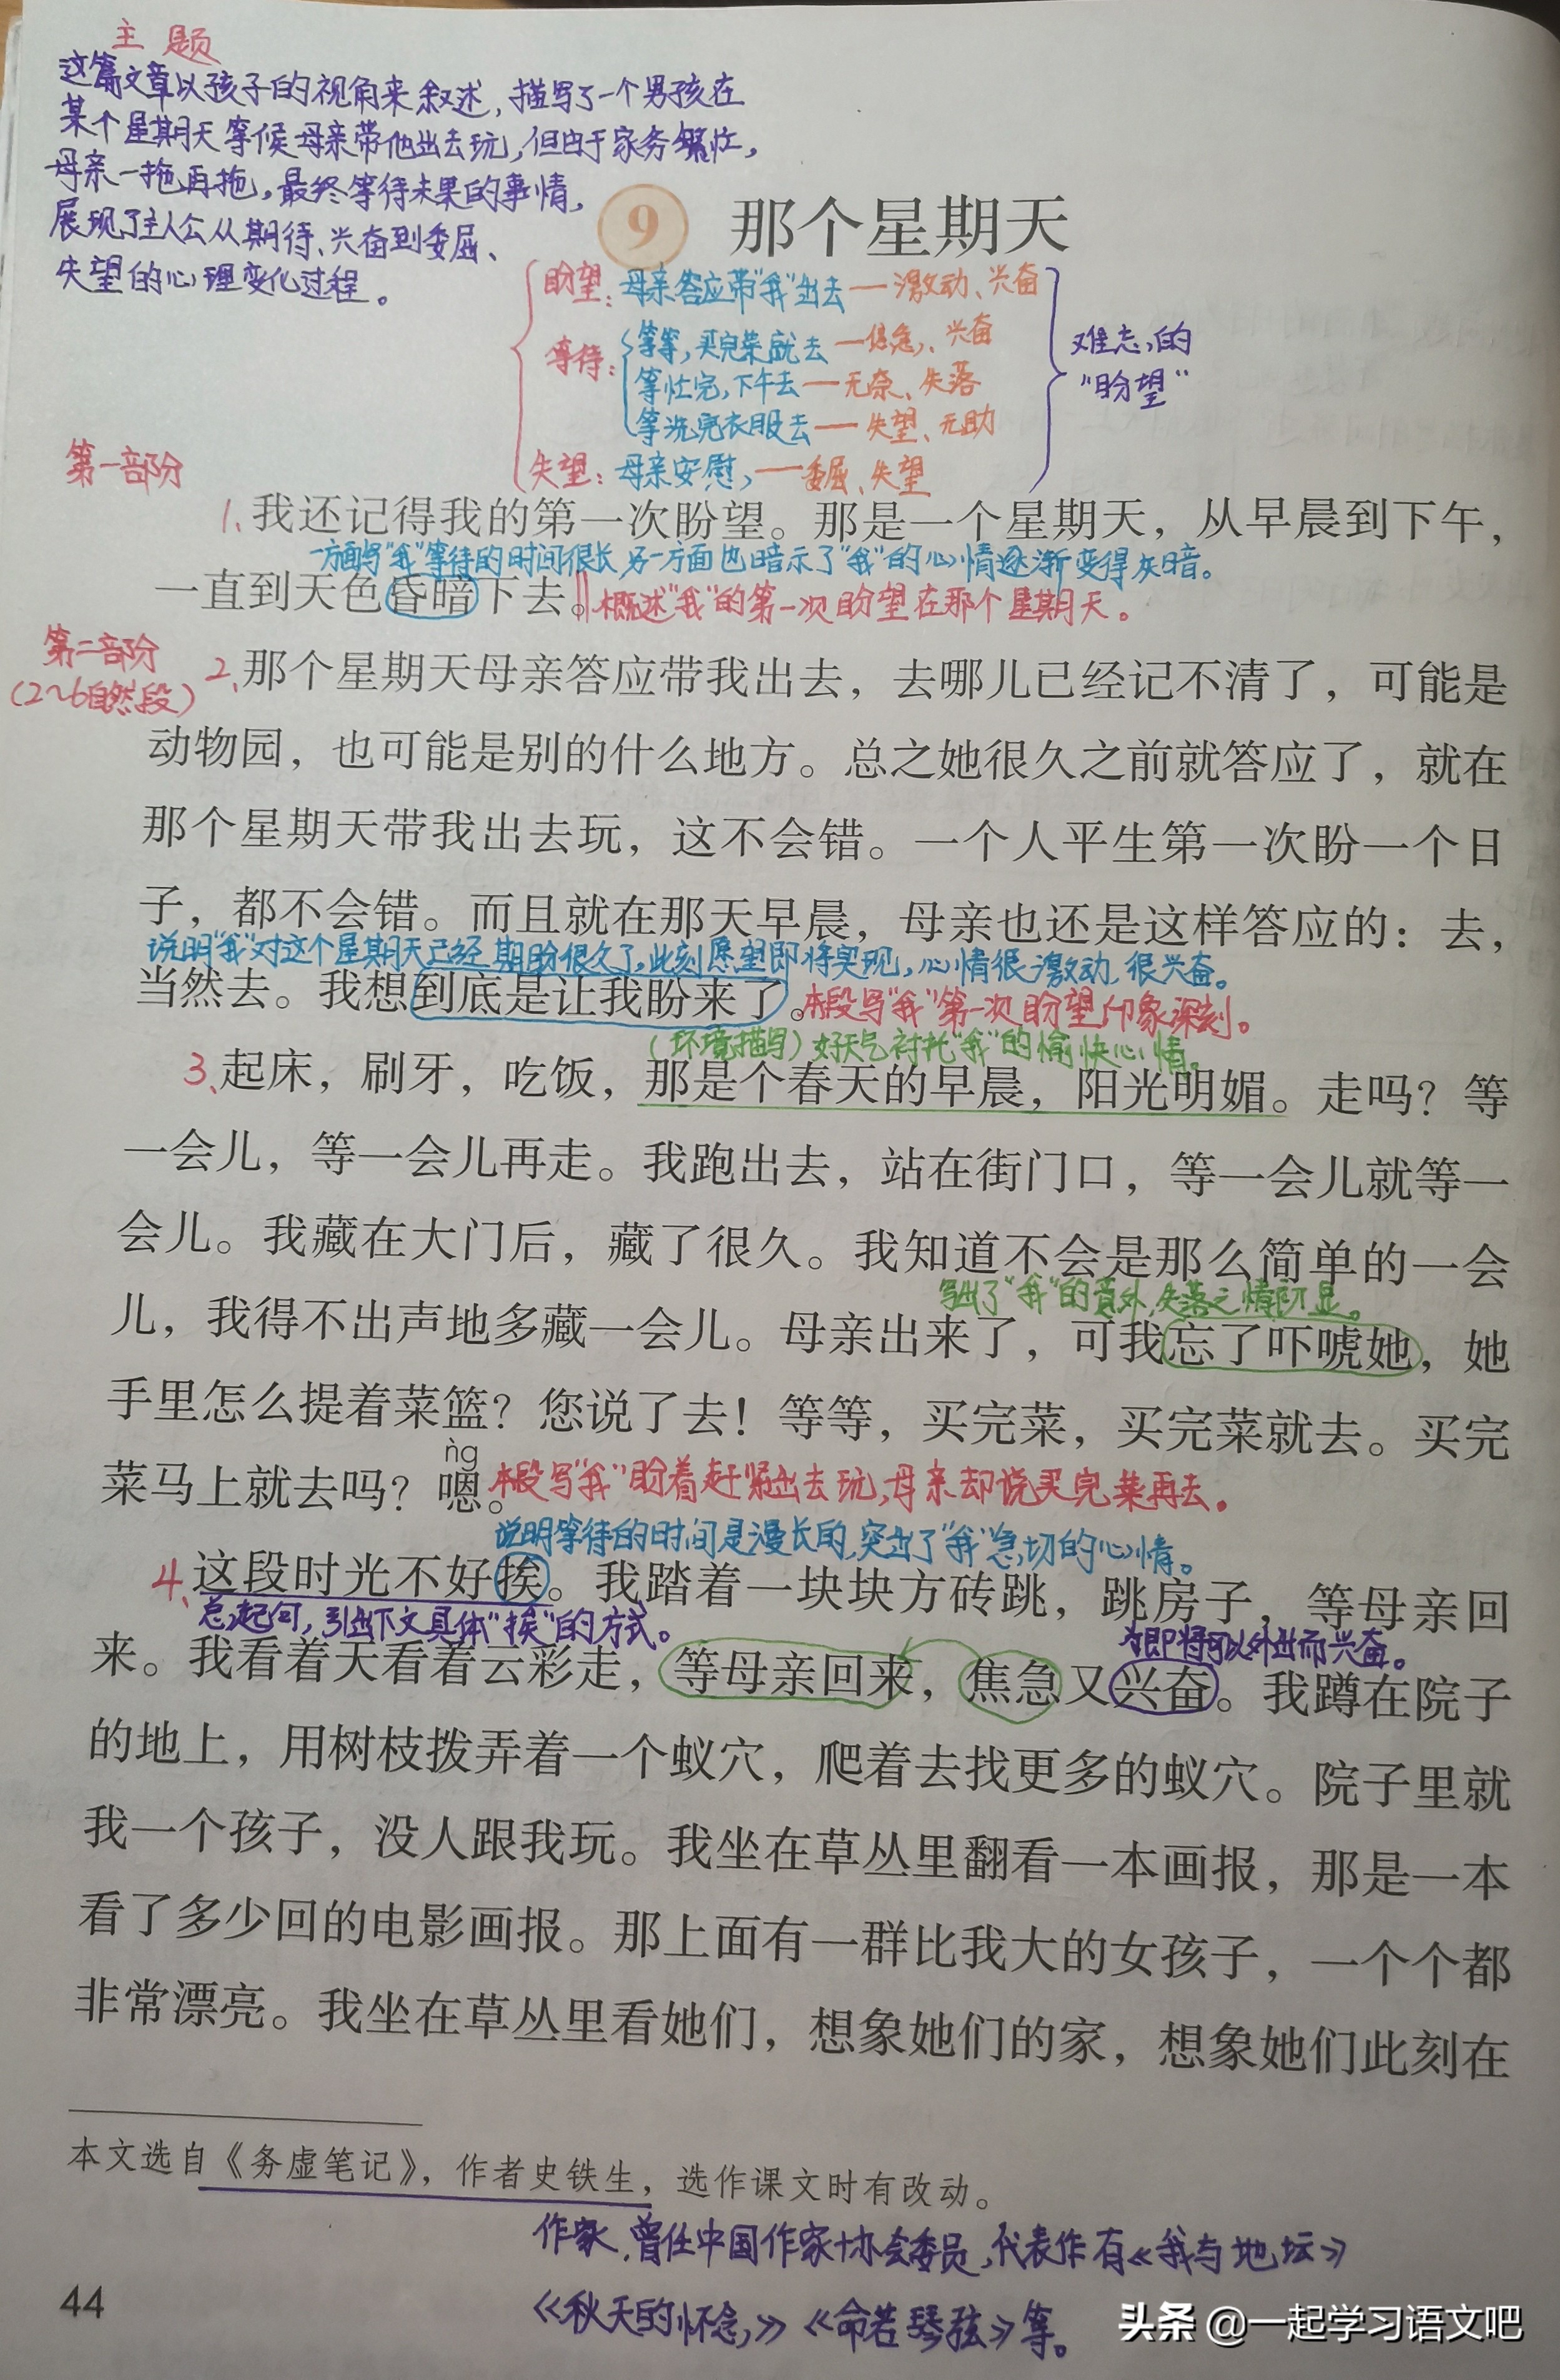 主题
这篇文章以孩子的视角来叙述,描写了一个男孩在
某个星期天等候母亲带他出去玩,但由于家务繁忙,
母亲一拖再拖,最终等待未果的事情,
展现了主人公从期待、兴奋到委屈、
失望的心理变化过程。
9 那个星期天
盼望:母亲答应带"我"出去——激动、兴奋
等待:
等等,买完菜就去——焦急、兴奋
等忙完,下午去——无奈、失落
等洗完衣服去——失望、无助
失望:母亲安慰,——委屈、失望
难忘的
"盼望"
第一部分
1、我还记得我的第一次盼望。那是一个星期天,从早晨到下午,
一方面写"我"等待的时间很长,另一方面也暗示了"我"的心情逐渐变得灰暗。
一直到天色昏暗下去。‖概述"我"的第一次盼望在那个星期天。
第二部分
(2~6自然段)
2、那个星期天母亲答应带我出去,去哪儿已经记不清了,可能是
动物园,也可能是别的什么地方。总之她很久之前就答应了,就在
那个星期天带我出去玩,这不会错。一个人平生第一次盼一个日
子,都不会错。而且就在那天早晨,母亲也还是这样答应的:去,
说明"我"对这个星期天已经期盼很久了,此刻愿望即将实现,心情很激动、很兴奋。
当然去。我想到底是让我盼来了。本段写"我"第一次盼望印象深刻。
(环境描写)好天气衬托"我"的愉快心情。
3、起床,刷牙,吃饭,那是个春天的早晨,阳光明媚。走吗?等
一会儿,等一会儿再走。我跑出去,站在街门口,等一会儿就等一
会儿。我藏在大门后,藏了很久。我知道不会是那么简单的一会
写出了"我"的意外,失落之情初显。
儿,我得不出声地多藏一会儿。母亲出来了,可我忘了吓唬她,她
手里怎么提着菜篮?您说了去!等等,买完菜,买完菜就去。买完
ǹg
菜马上就去吗?嗯。本段写"我"盼着赶紧出去玩,母亲却说买完菜再去。
说明等待的时间是漫长的,突出了"我"急切的心情。
4、这段时光不好挨。我踏着一块块方砖跳,跳房子,等母亲回
总起句,引出下文具体"挨"的方式。
为即将可以外出而兴奋。
来。我看着天看着云彩走,等母亲回来,焦急又兴奋。我蹲在院子
的地上,用树枝拨弄着一个蚁穴,爬着去找更多的蚁穴。院子里就
我一个孩子,没人跟我玩。我坐在草丛里翻看一本画报,那是一本
看了多少回的电影画报。那上面有一群比我大的女孩子,一个个都
非常漂亮。我坐在草丛里看她们,想象她们的家,想象她们此刻在
本文选自《务虚笔记》,作者史铁生,选作课文时有改动。
作家,曾任中国作家协会委员,代表作有《我与地坛》
《秋天的怀念》《命若琴弦》等。
44
头条 @一起学习语文吧